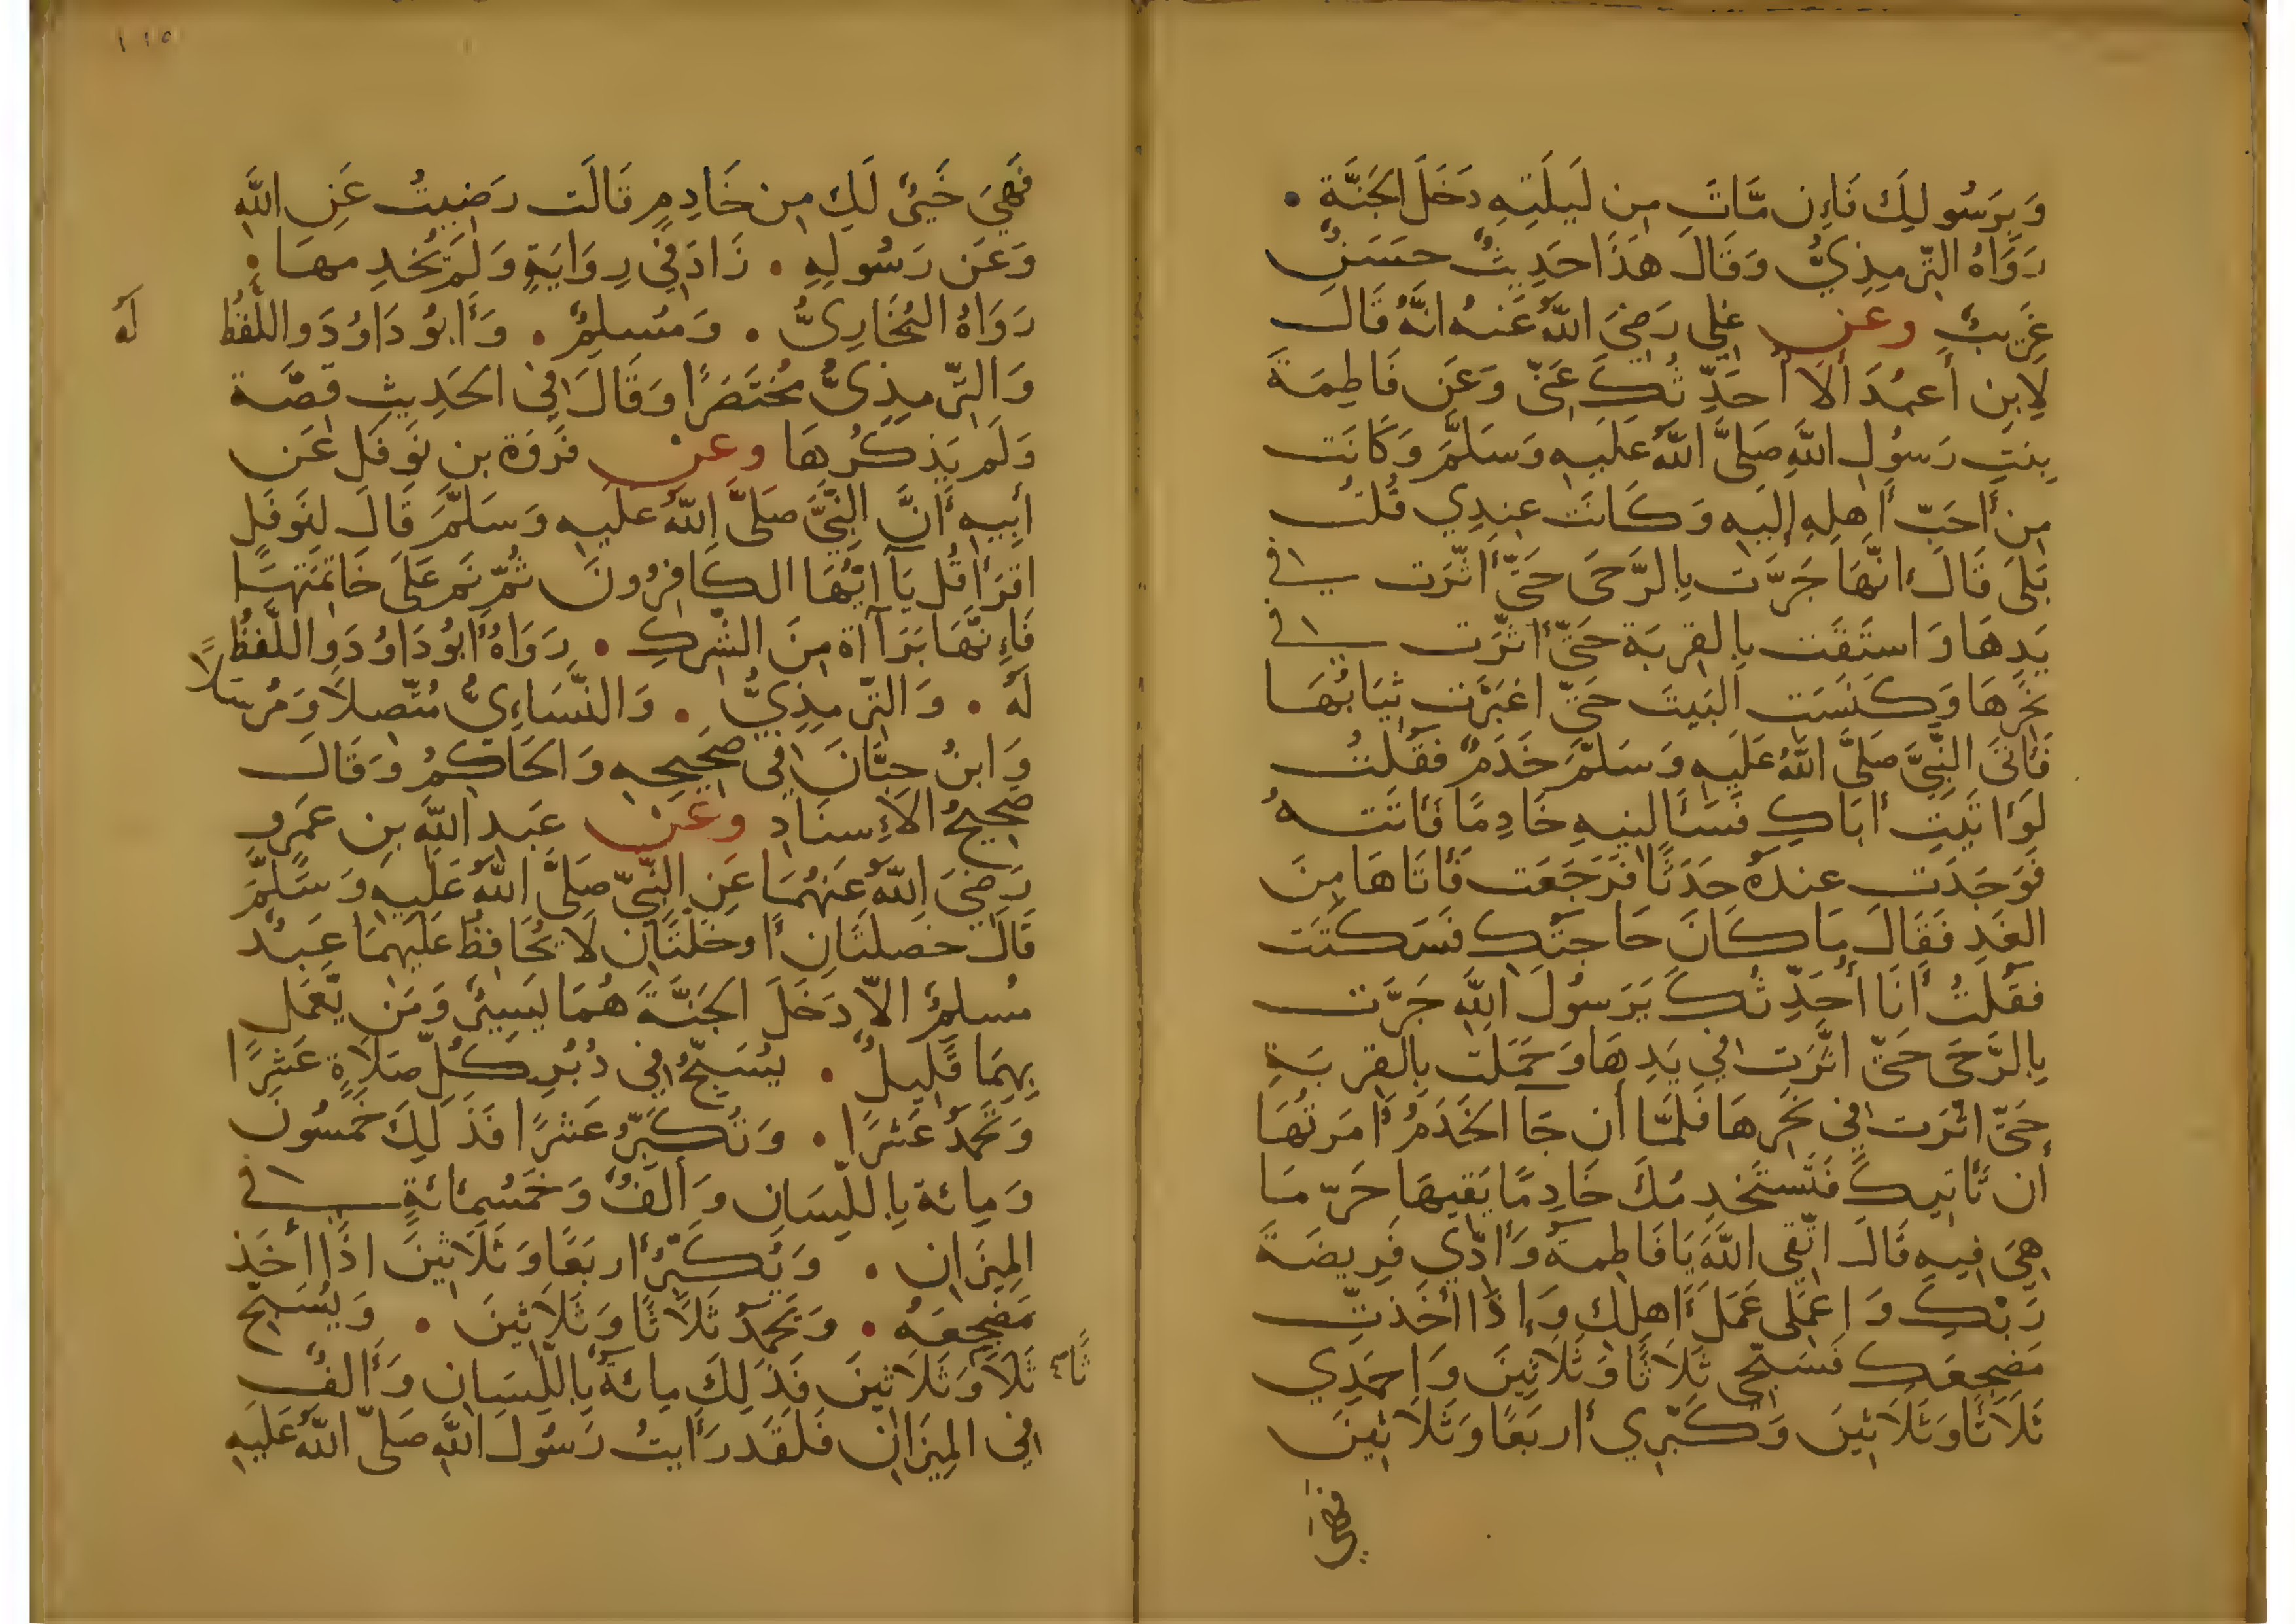 وَبِرَسُولِكَ فَإِن مَّاتَ مِن لَيلَتِهِ دَخَلَ الجَنَّةِ •
رَوَاهُ التِّرمِذِيُّ وَقَالَ هَذَا حَدِيثٌ حسَنٌ
غَرِيبٌ وعن علي رَضِيَ اللَّهُ عَنهُ انَّهُ قَال
لِابنِ أعبُدَ ألَا أُحَدِّثُكَ عَنّي وَعَن فَاطِمَةَ
بِنتِ رَسُولِ اللَّهِ صَلَّى اللَّهُ عَلَيهِ وَسَلَّمَ وَكَانَت
مِن أَحَبّ أَهلِهِ إلَيهِ وَكَانَت عِندِي قُلتُ
بَلَى قَالَ انَّهَا جَرَّت بِالرَّحَى حَتَّى أَثَّرَت في
يَدِهَا وَاستَقَت بِالقِربَة حَتَّى أَثَّرَت في
نَحرِهَا وَكَنَسَت البَيتَ حَتَّى اغبَرَّت ثِيَابُهَا
فَأتَى النَّبِيَّ صَلَّى اللَّهُ عَلَيهِ وَسَلَّمَ خَدَمٌ فقُلتُ
لَو أتَيتِ أبَاكِ فَسَألتيهِ خَادِمًا فَأتَتهُ
فَوَجَدَت عندَهُ حدَثًا فَرَجَعَت فَأتَاهَا مِنَ
الغَدِ فَقَالَ مَا كَانَ حَاجتُكِ فَسَكَتَت
فقُلتُ أَنَا أُحَدِّثُكَ يَرَسُولَ اللَّهِ جَرَّت
بِالرَّحَى حَتَّى اثَّرَت فِي يَدِهَا وَحَمَلَت بِالقِربَةِ
حَتَّى اثَّرَت فِي نَحرِهَا فَلَمَّا أن جَآ الخَدَمُ أَمَرتُهَا
أن تَأتيكَ فَتَستَخدِمُكَ خَادِمًا يَقيهَا حَرّ مَا
هِيَ فِيهِ قَالَ اتَّقِي اللَّهَ يَا فَاطِمَةُ وَأَدّي فَرِيضَةَ
رَبّكِ وَاعمَلِي عَمَلَ أَهلِكِ وَإذَا أخَذتِ
مَضجِعَكِ فَسَبِّحِي ثَلَاثًا وَثَلَاثِينَ وَاحمَدِي
ثَلَاثًا وَثَلَاثِينَ وَكَبِّرِي أربَعًا وَثَلَاثِينَ
فَهِيَ
١١٥
فَهِيَ خَيرٌ لَكِ مِن خَادِمٍ قَالَت رَضِيتُ عَنِ اللَّهِ
وَعَن رَسُولِهِ • زَادَ فِي رِوَايَةٍ وَلَم يُخدِمهَا •
رَوَاهُ البُخَارِيُّ • وَمُسلِمٌ • وَأبُو دَاوُدَ واللَّفظُ لَه
وَالتِّرمِذِيُّ مُختَصَرًا وَقَالَ فِي الحَدِيثِ قصَّة
وَلَم يَذكُرهَا وعن فَروَة بن نَوفَل عَن
أبِيهِ أنَّ النَّبِيَّ صَلَّى اللَّهُ علَيهِ وَسَلَّمَ قَالَ لنَوفَلٍ
اقرَأ قُل يَآ ايُّهَا الكَافِرُونَ ثُمّ نَم عَلَى خَاتِمَتِهَا
فَإنَّهَا بَرَآاة مِنَ الشِّركِ • رَوَاهُ أَبُو دَاوُدَ واللَّفظُ
لَهُ • وَالتِّرمِذِيُّ • وَالنَّسَاءِيُّ مُتَّصِلًا وَمُرسَلًا
وَابنُ حِبَّانَ فِي صَحِيحِهِ وَالحَاكِمُ وَقَالَ
صَحِيحُ الإسنَادِ وعَن عَبدِ اللَّهِ بنِ عَمرٍو
رَضِيَ اللَّهُ عَنهُمَا عَنِ النَّبِيّ صَلَّى اللَّهُ عَلَيهِ وَسَلَّمَ
قَالَ خصلتَانِ أَو خَلّتَانِ لَا يُحَافِظُ عَلَيهِمَا عَبدٌ
مُسلِمٌ الَّا دَخَلَ الجَنَّةَ هُمَا يَسِيرٌ وَمَن يَّعمَل
بِهِمَا قَلِيلٌ • يُسَبِّحُ فِي دُبُرِ كُلّ صَلَاةٍ عَشرًا
وَيَحمَدُ عَشرًا • وَيُكَبِّرُ عَشرًا فَذَلِكَ خَمسُونَ
وَمِائة بِاللِّسَانِ وَألفٌ وَخَمسُمِائَةٍ في
المِيزَانِ • وَيُكَبِّرُ أربَعًا وَثَلَاثِينَ اذَا أخَذ
مَضجِعَهُ • وَيَحمَدُ ثَلَاثًا وَثَلَاثِينَ • وَيُسَبِّحُ
ثَلَاثًا وَثَلَاثِينَ فَذَلِكَ مِائَةٌ بِاللِّسَانِ وَأَلفٌ
فِي المِيزَانِ فَلَقَد رَأَيتُ رَسُولَ اللَّهِ صَلَّى اللَّهُ عَلَيهِ